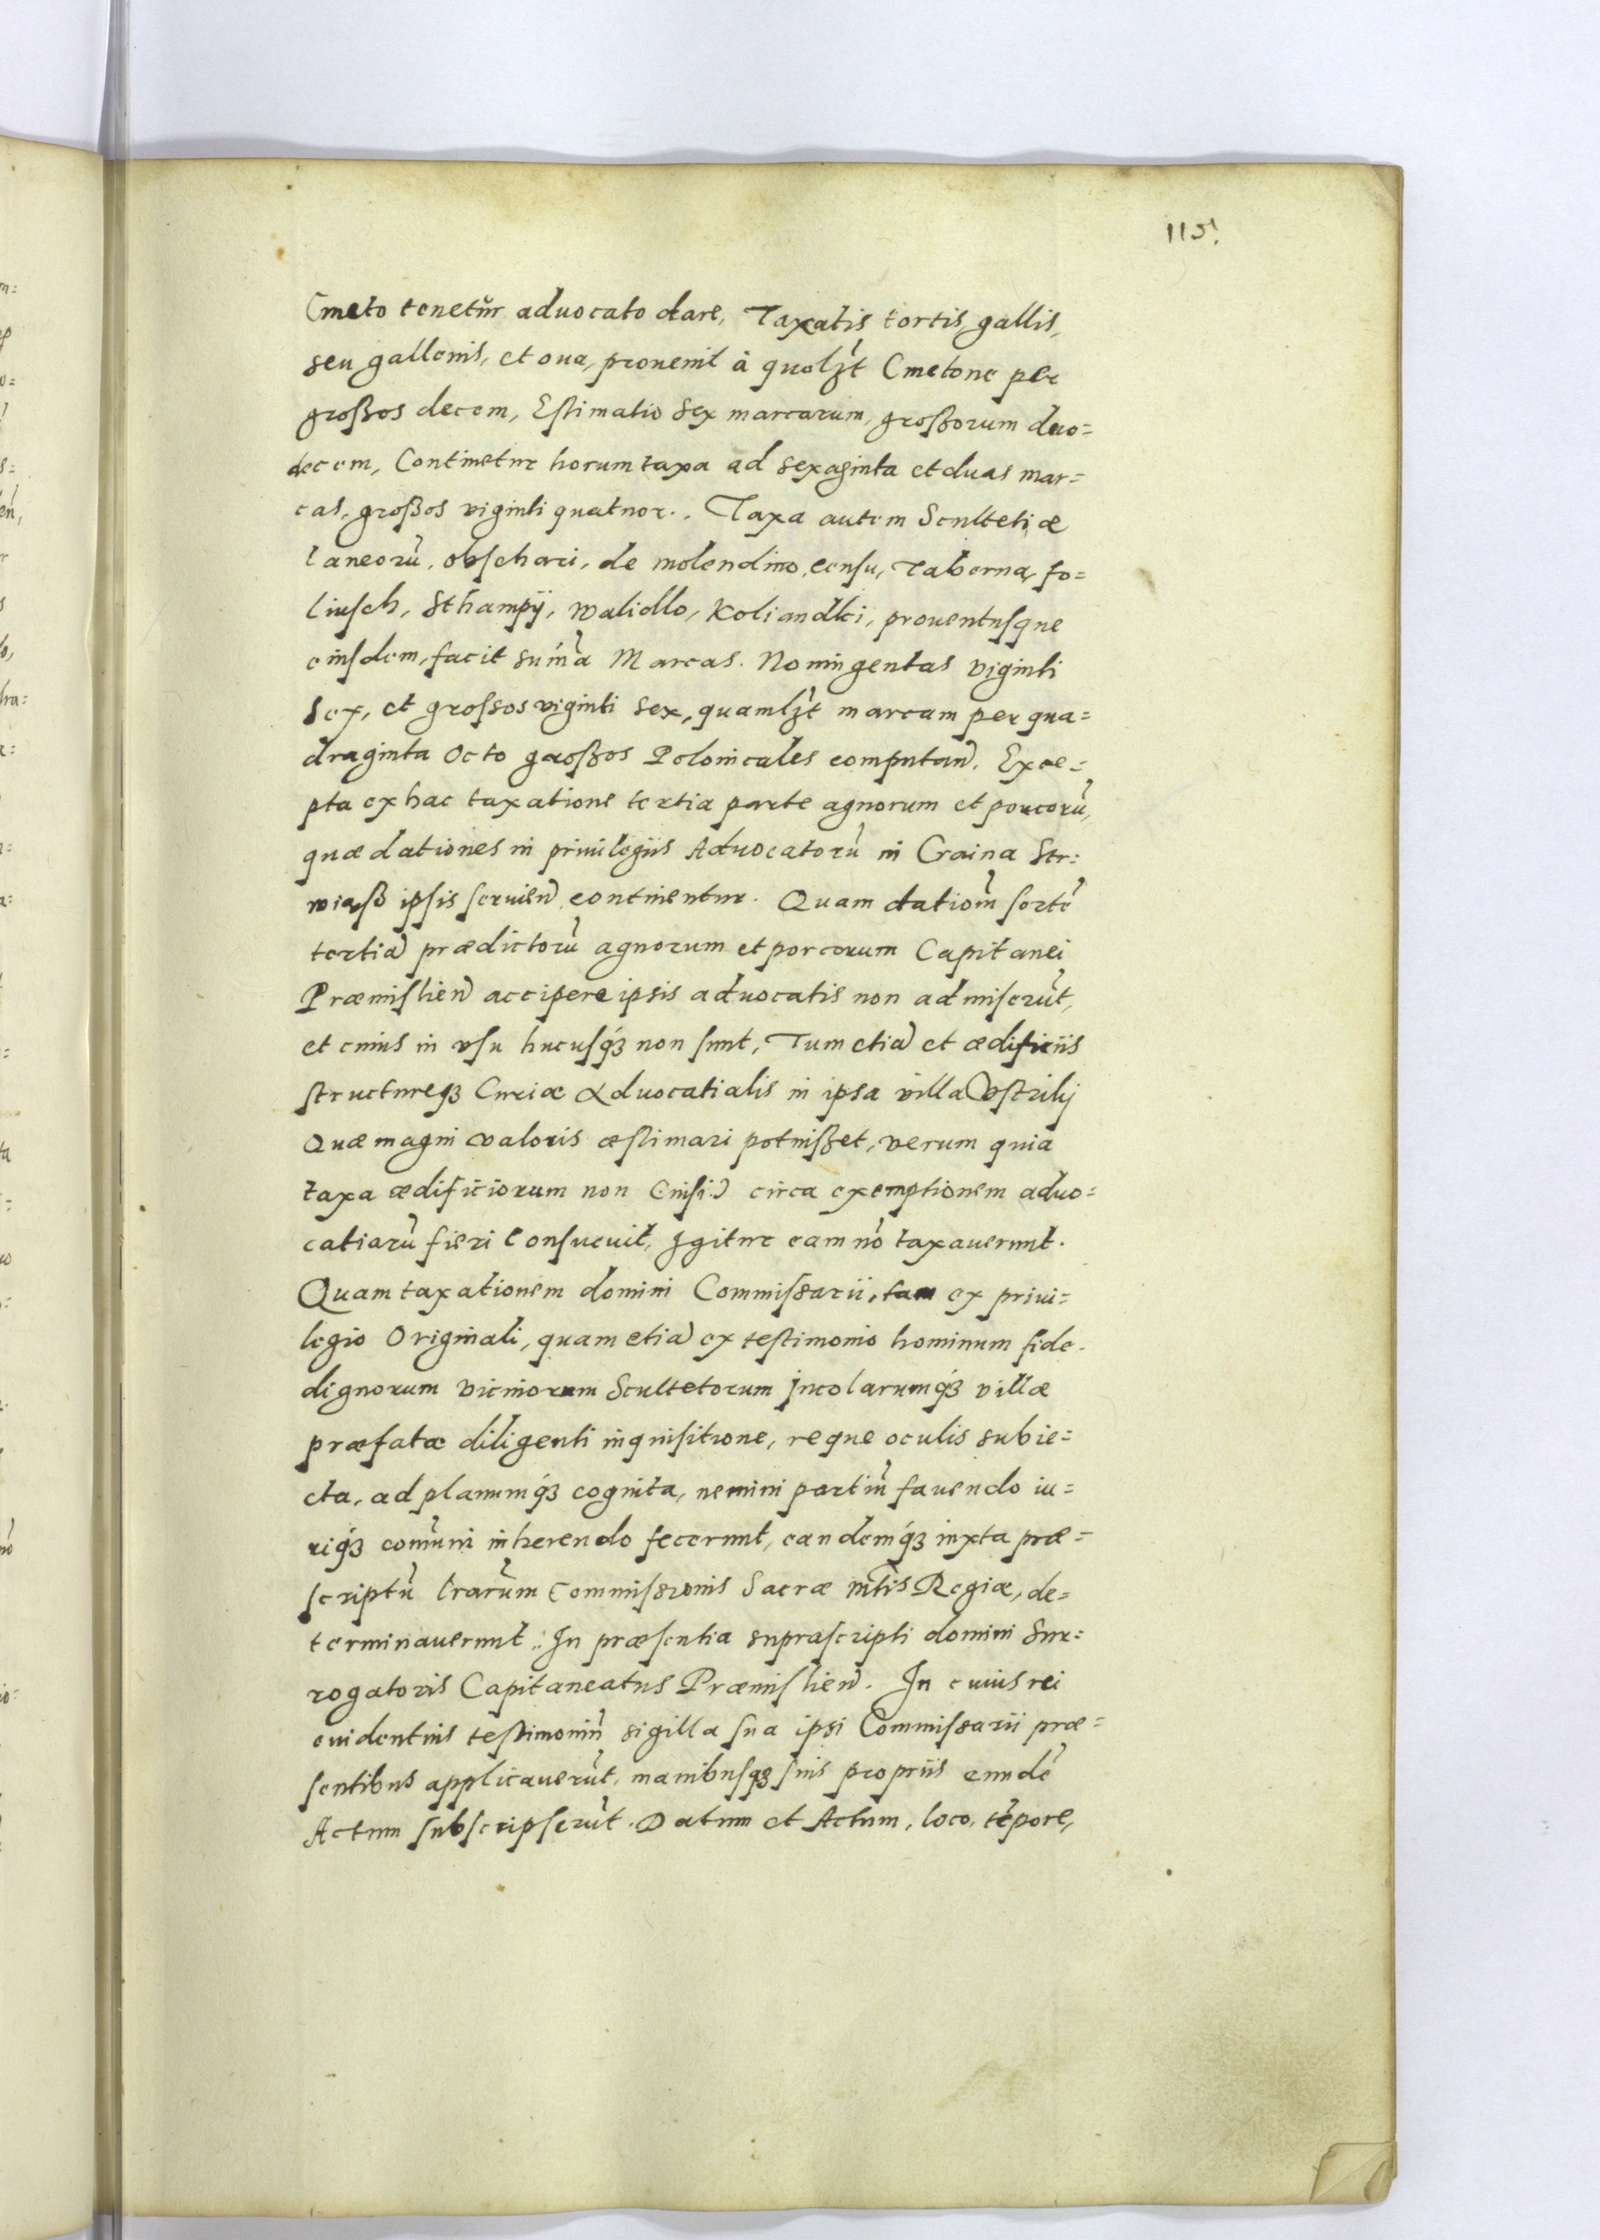 115.
Cmeto tenetur advocato dare, Taxatis tortis, gallis,
seu gallenis, et oua, prouenit à quolʒt Cmetone per
großos decem, Estimatio Sex marcarum, großorum duo=
decem, Continetur horum taxa ad sexaginta et duas mar=
cas, großos viginti quatuor. Taxa autem Scultetiæ
laneorũ, obschari, de molendino, censu, Taberna, fo=
liusch, Sthampÿ, waliollo, Koliandki, prouentusque
eiusdem, facit sum̃a Marcas. Noningentas viginti
Sex, et grossos viginti sex, quamlʒt marcam per qua=
draginta Octo großos Polonicales computan̄. Exce=
pta ex hac taxatione tertia parte agnorum et porcorũ,
quæ dationes in priuilegiis Aduocatorũ in Craina Str=
wiąß ipsis seruien̄ continentur. Quam dationũ sortẽ
tertiā prædictorũ agnorum et porcorum Capitanei
Præmislien̄ accipere ipsis aduocatis non admiserũt,
et cuius in vsu hucusqʒ non sunt, Tum etiā et ædificiis
structureqʒ Curiæ Aduocatialis in ipsa villa Vstrilij
Quæ magni valoris æstimari potuißet, verum quia
taxa ædificiorum non circa exemptionem aduo=
catiarũ fieri Consueuit, Igitur eam nõ taxauerunt.
Quam taxationem domini Commissarii, tam ex priui=
legio Originali, quam etiā ex testimonio hominum fide
dignorum vicinorum Scultetorum Incolarumqʒ villæ
præfatæ diligenti inquisitione, reque oculis subie=
cta, ad planumqʒ cognita, nemini partiũ fauendo iu=
riqʒ com̃uni inherendo fecerunt, eandemqʒ iuxta præ=
scriptũ l̃rarum Commissionis Sacræ M̃tis Regiæ, de=
terminauerunt. In præsentia suprascripti domini Sur=
rogatoris Capitaneatus Præmislien̄. In cuius rei
euidentius testimoniũ sigilla sua ipsi Commissarii præ=
sentibus applicauerũt, manibusqʒ suis propriis eundẽ
Actum subscripserũt. Datum et Actum, loco, tẽpore,